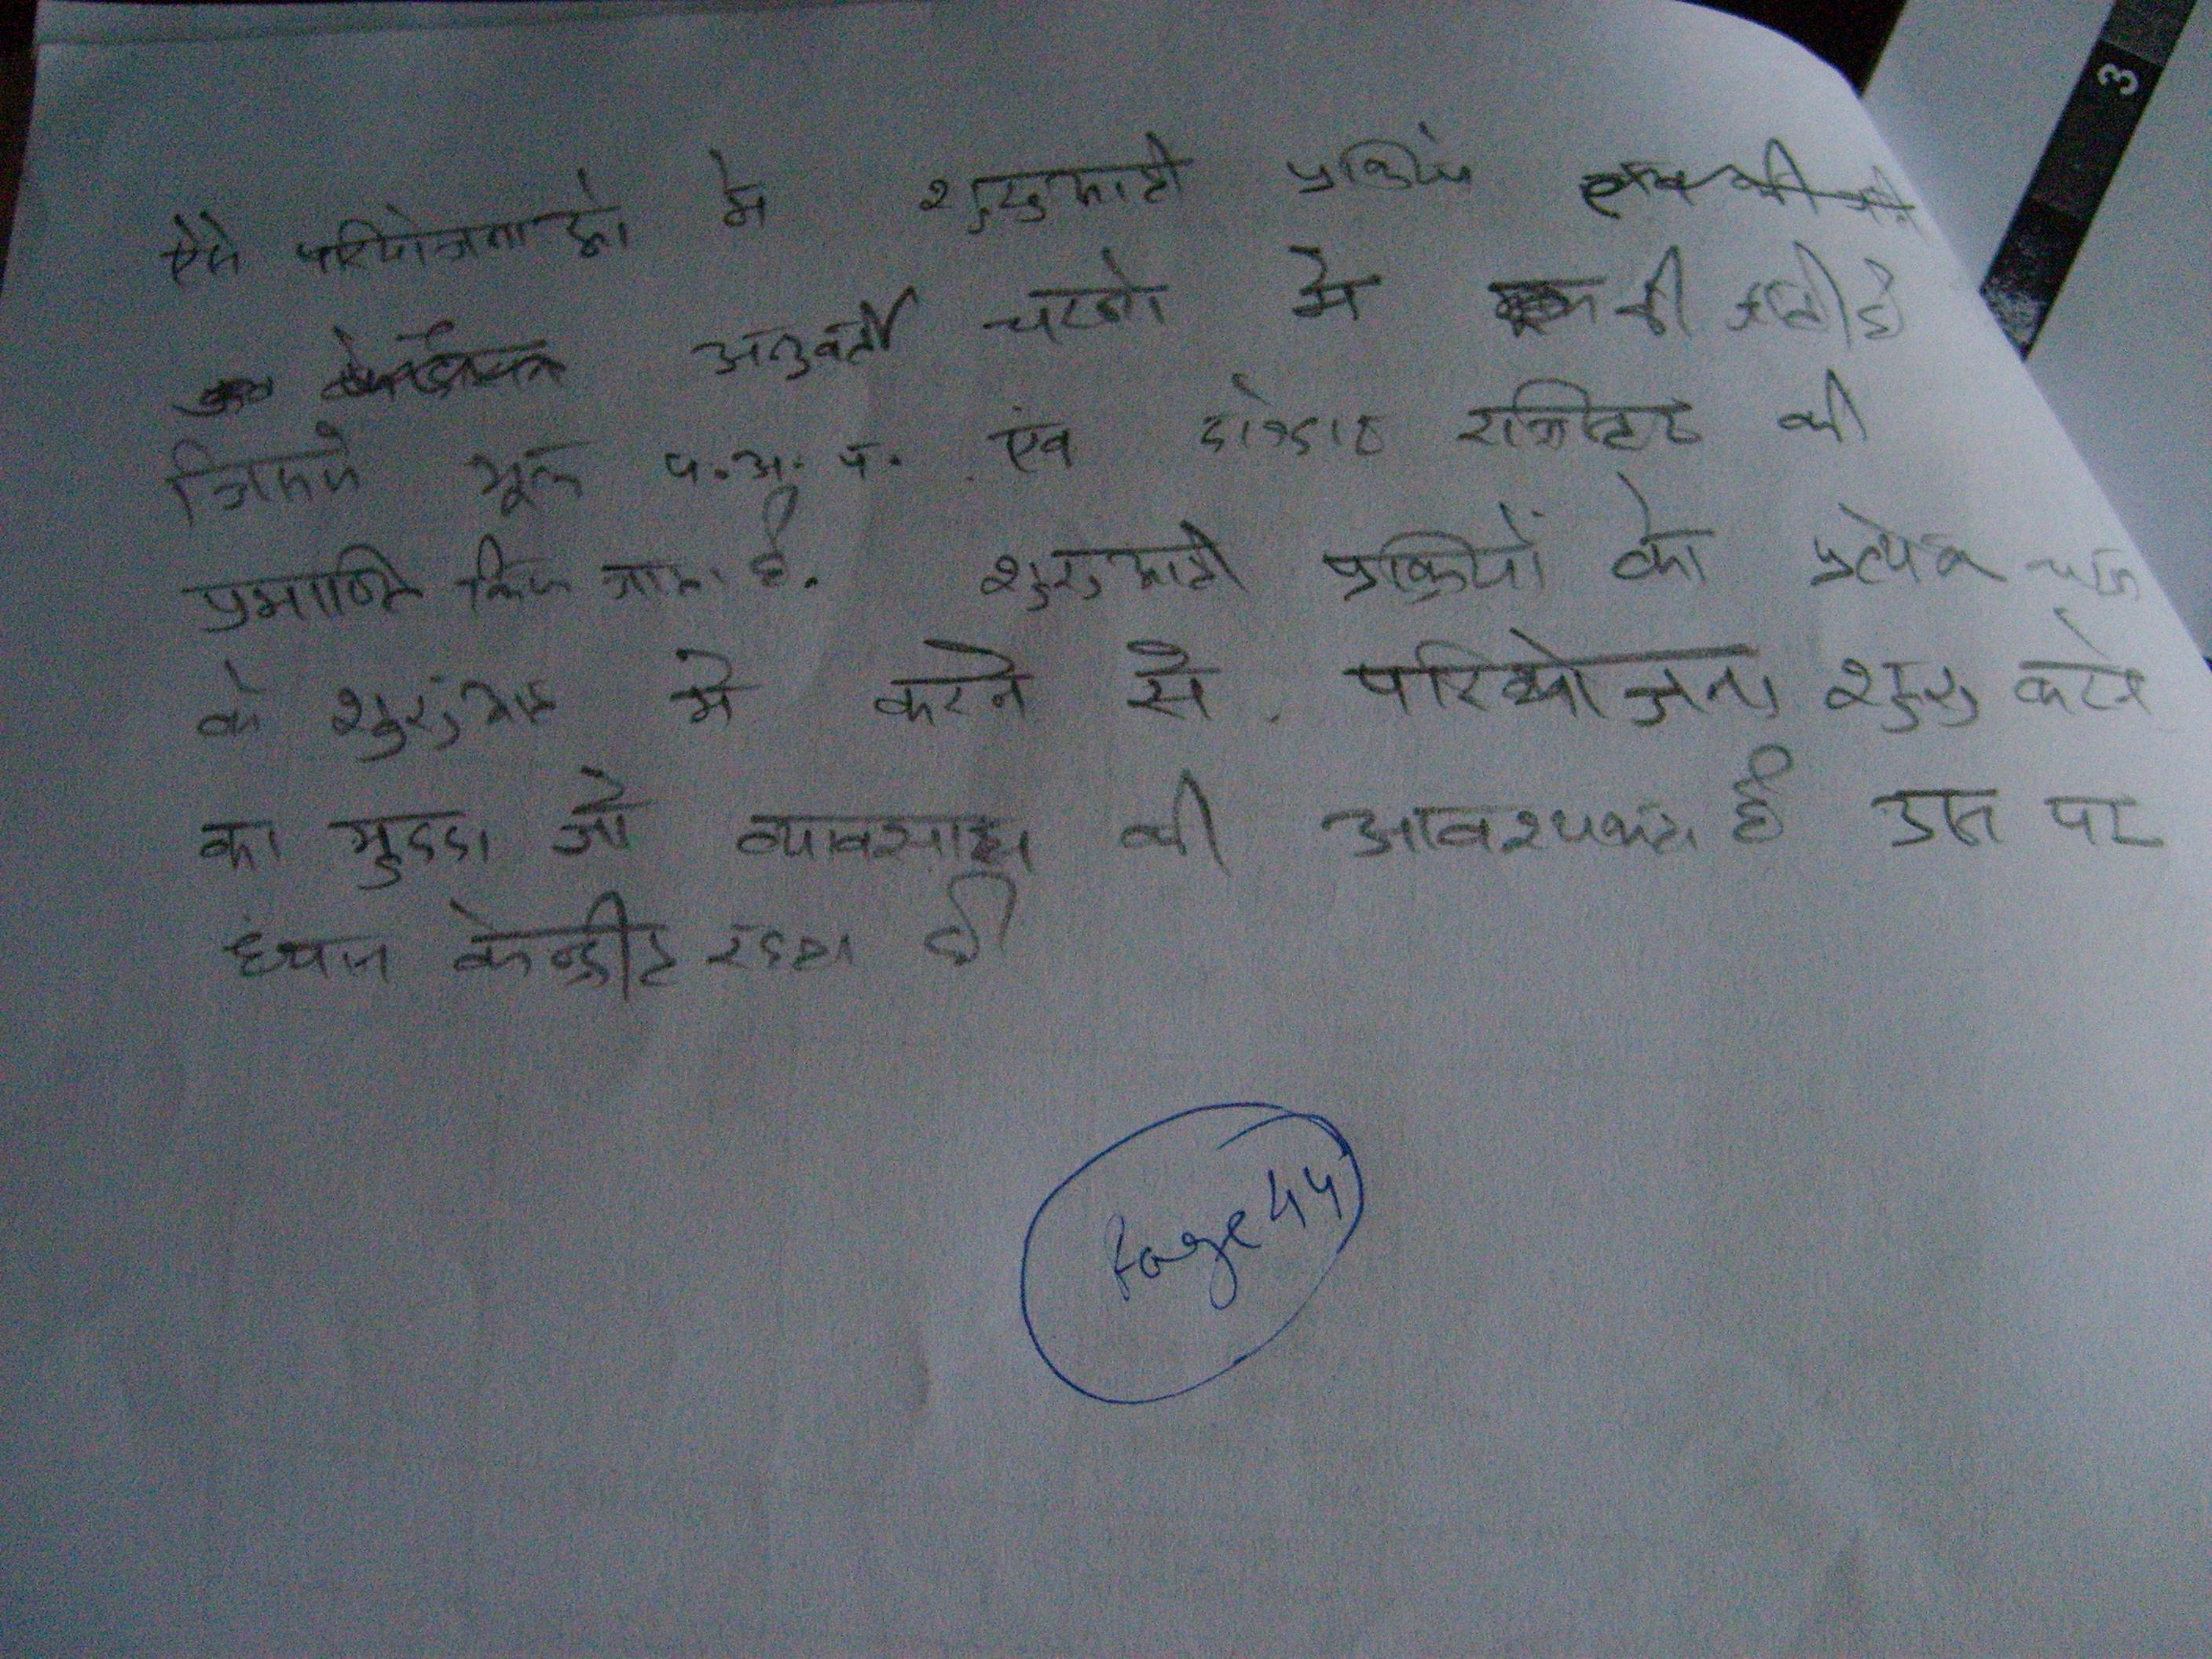 ऐसे परियोजनाओ मे शुरुआती प्रक्रिये
अनुवर्ती चरणो मे की जाती है
जिसमे मूल प.अ.प. एंव होल्डर रजिस्टर की
प्रमाणित किया जाता है. शुरुआती प्रक्रियों को प्रत्येक चरण
के शुरुआत मे करने से परियोजना शुरु करने
का मुददा जो व्यावसाय की आवश्यकता है उस पर
ध्यान केन्द्रीत रहता है
Page 44
3